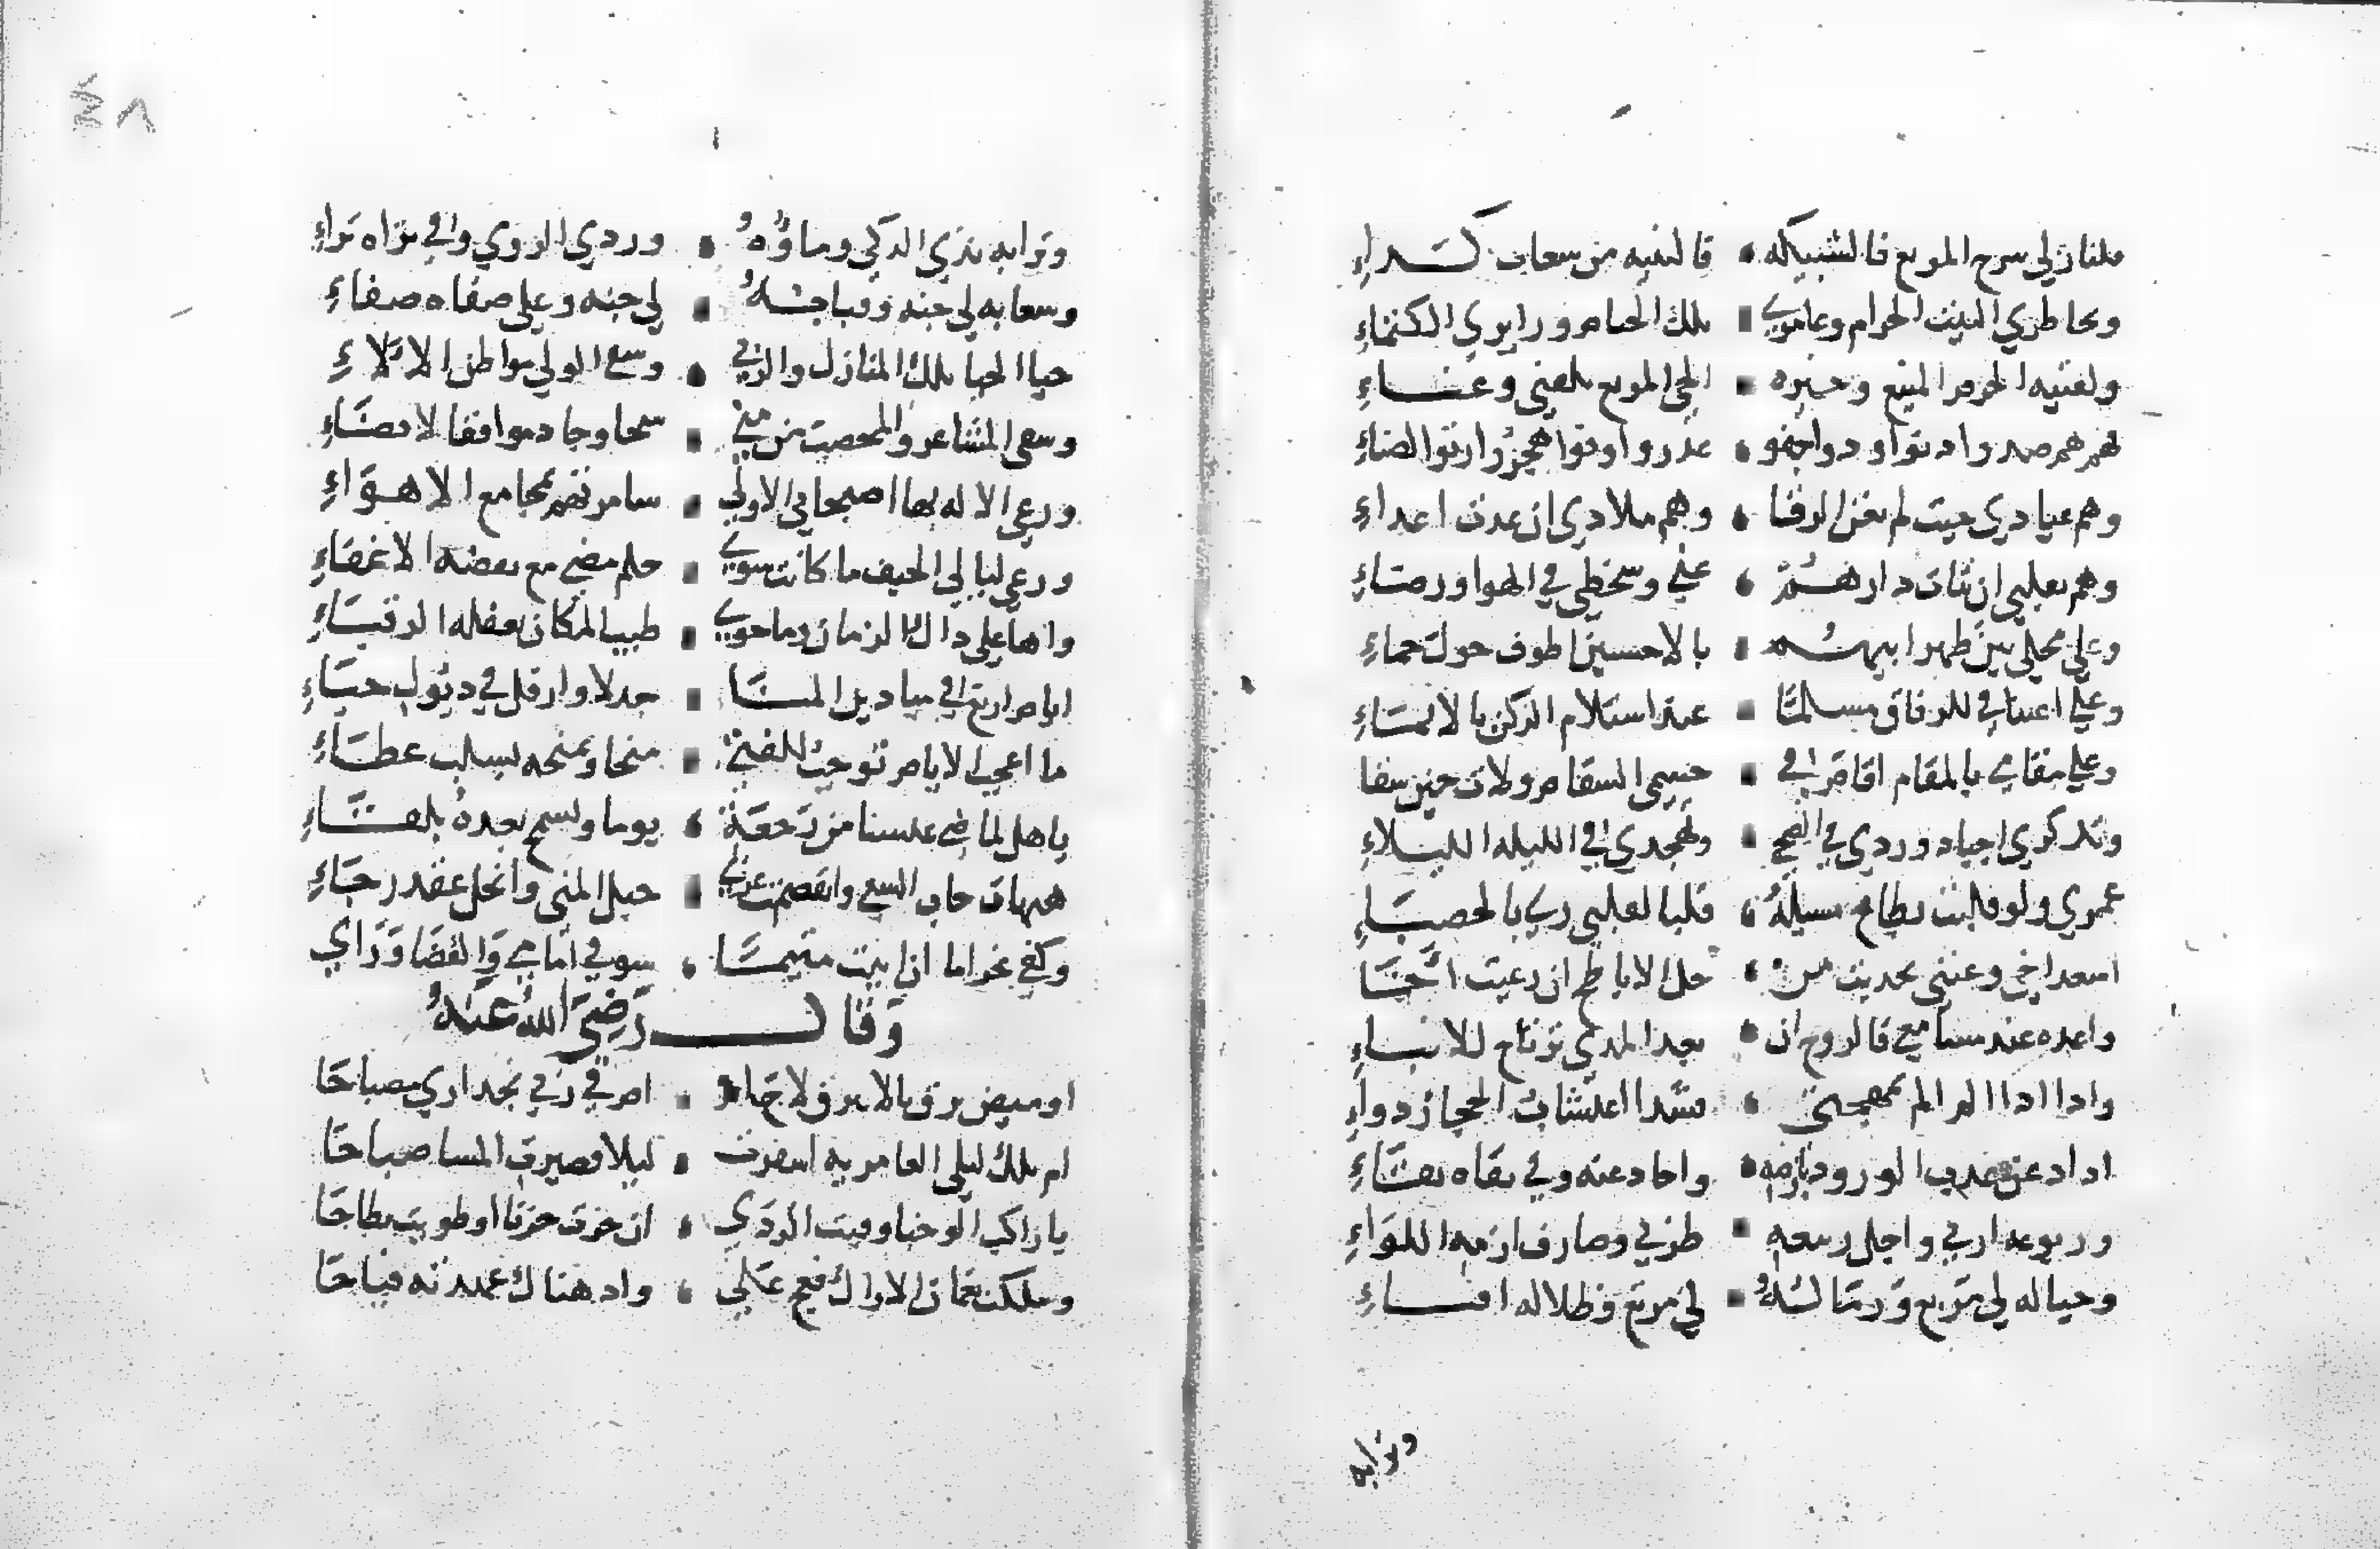 فلنازلي سرح المربع فالشبيكه فالثنيه من شعاب كداء
ولحاضري البيت الحرام وعامري تلك الخيام وزايري الحثماء
ولفتيه الحرم المنيع وجيره الحي المريع تلفتي وعناء
فهم هم صدوا دنوا ودوا جفو غدروا وفوا هجروا رثوا لضناء
وهم عيادي حيث لم تغن الرقا وهم ملادي ان غدت اعداء
وهم بقلبي ان تناءت دارهم عني وسخطي في الهوا ورضاء
وعلى محلي بين ظهرانيهم بالاخشبين اطوف حول حماء
وعلي اعتناقي للرفاق مسلما عند استلام الركن بالايماء
وعلي مقامي بالمقام اقام في جسمي السقام ولات حين شفا
وتدكري اجياد وردي في الضحي وتهجدي في الليله الليلاء
عمري ولو قلبت بطاح مسيله قلبا لقلبي ري بالحصباء
اسعد اخي وغنني بحديث من حل الاباطح ان رعيت اخا
واعده عند مسامعي فالروح ان بعد المدي ترتاح للانباء
وادا ادا الم الم بمهجتي فشدا اعيشاب الحجاز دواء
اداد عن عدب الورود بارضه واحاد عنه وفي نقاه بقاء
وربوعه اربي واجل ربيعه طربي وصارف ازمه اللواء
وجباله لي مربع ورماله لي مرتع وظلاله افياء
وترابه
٤٨
وترابه ندي الدكي وماؤه وردي الروي وفي ثراه ثراء
وشعابه لي جنه وقبابه لي جنه وعلي صفاه صفاء
حيا الحيا تلك المنازل والربي وسقي الولي مواطن الالاء
وسقي المشاعر والمحصب من مني سحا وجاد مواقف الانضاء
ورعي الاله بها اصيحابي الاولي سامرتهم بمجامع الاهواء
ورعي ليالي الخيف ما كانت سوي حلم مضي مع يقضه الاغفاء
واها علي داك الزمان وما حوي طيب المكان بغفله الرقباء
ايام ارتع في ميادين المنا جدلا وارفل في ديول حباء
ما اعجب الايام توجب للفتي منحا وتمنحه بسلب عطاء
يا هل لماضي عيشنا من رجعة يوما واسمح بعده ببقاء
هيهات خاب السعي وانفصمت عري حبل المني وانحل عقد رجاء
وكفي غراما ان ابيت متيما شوقي امامي والقضا وراي
وقال رضي الله عنه
اوميض برق بالابيرق لاحا ام في ربي نجد اري مصباحا
ام تلك ليلي العامريه اسفرت ليلا فصيرت المسا صباحا
يا راكب الوجنا وقيت الردي ان جزت حزنا او طويت بطاحا
وسلكت نعمان الاراك فعج علي واد هناك عهدته فياحا